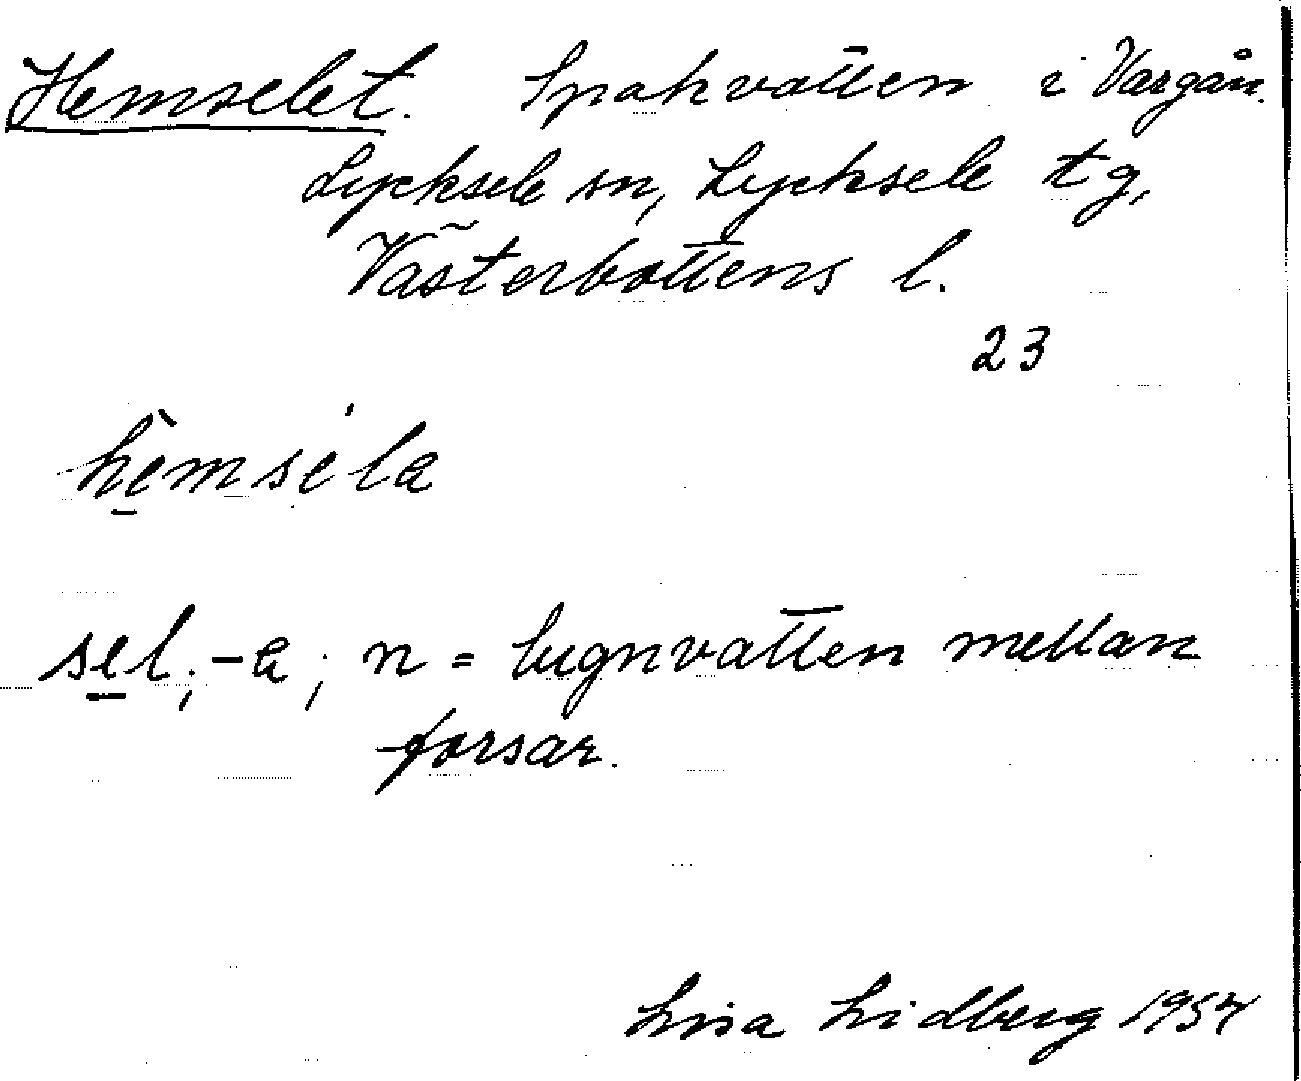 Hemselet. Spakvatten i Vargån.
Lycksele sn, Lycksele tg,
Västerbottens l.
23
hèmséla
sel, -a; n = lugnvatten mellan
forsar.
Lisa Lidberg 1957